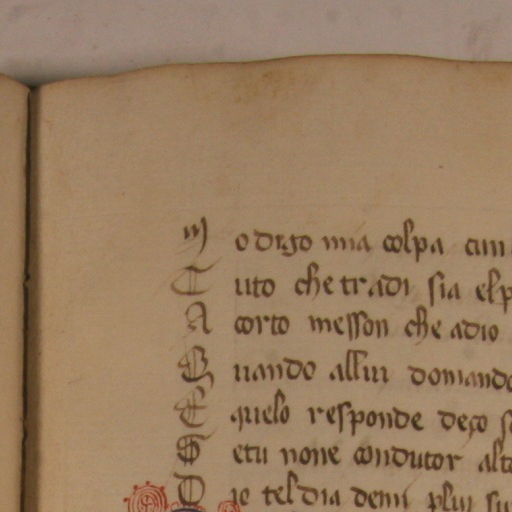 M o dirgo mia colpa cun
T uto che tradi sia el p
A corto messon che adio
G uando allui domando
E quelo responde deço s
S etu none condutor alt
D io tel dia demi plui su